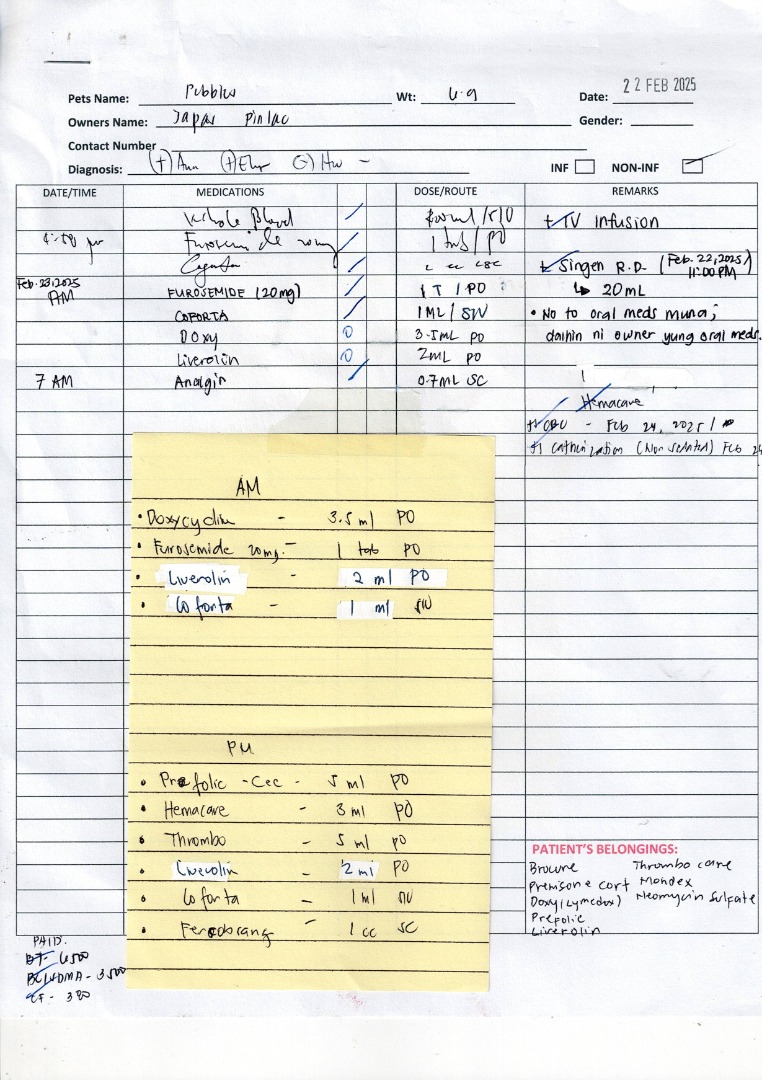 Pets Name: Pubbles Wt: 4.9 Date: 22 FEB 2025
Owners Name: Japar Pinlac Gender:
Contact Number
Diagnosis: (+) Ana (+) Ehr (-) Hw -
INF NON-INF
DATE/TIME MEDICATIONS DOSE/ROUTE REMARKS
Whole Blood + IV Infusion
Furosemide 20mg 1 tab / PO
+ Singen R.D. (Feb. 22, 2025/ 11:00 PM)
Feb. 23, 2025 AM FUROSEMIDE (20mg) 1 T / PO ↳ 20mL
COFORTA 1ML / SIVV • No to oral meds muna;
DOXY 3.5ML PO dalhin ni owner yung oral meds.
Liverolin 2ML PO
7 AM Analgin 0.7ML SC
Hemacare
+ CBC - Feb 24, 2025 /
(Non sedated) Feb 24
AM
• Doxycyclin - 3.5 ml PO
• Furosemide 20mg. - 1 tab PO
• Liverolin - 2 ml PO
• Coforta - 1 ml
PM
• Prefolic - Cee - 5 ml PO
• Hemacare - 3 ml PO
• Thrombo - 5 ml PO
• Liverolin - 2 ml PO
• Coforta - 1 ml
• Ferrobrang - 1 cc SC
PATIENT'S BELONGINGS:
Browne Thrombo care
Premisone cort Mondex
Doxy (Lymedox) Neomycin Sulfate
Prefolic
Liverolin
PAID.
BT - 6500
- 3500
CF - 380